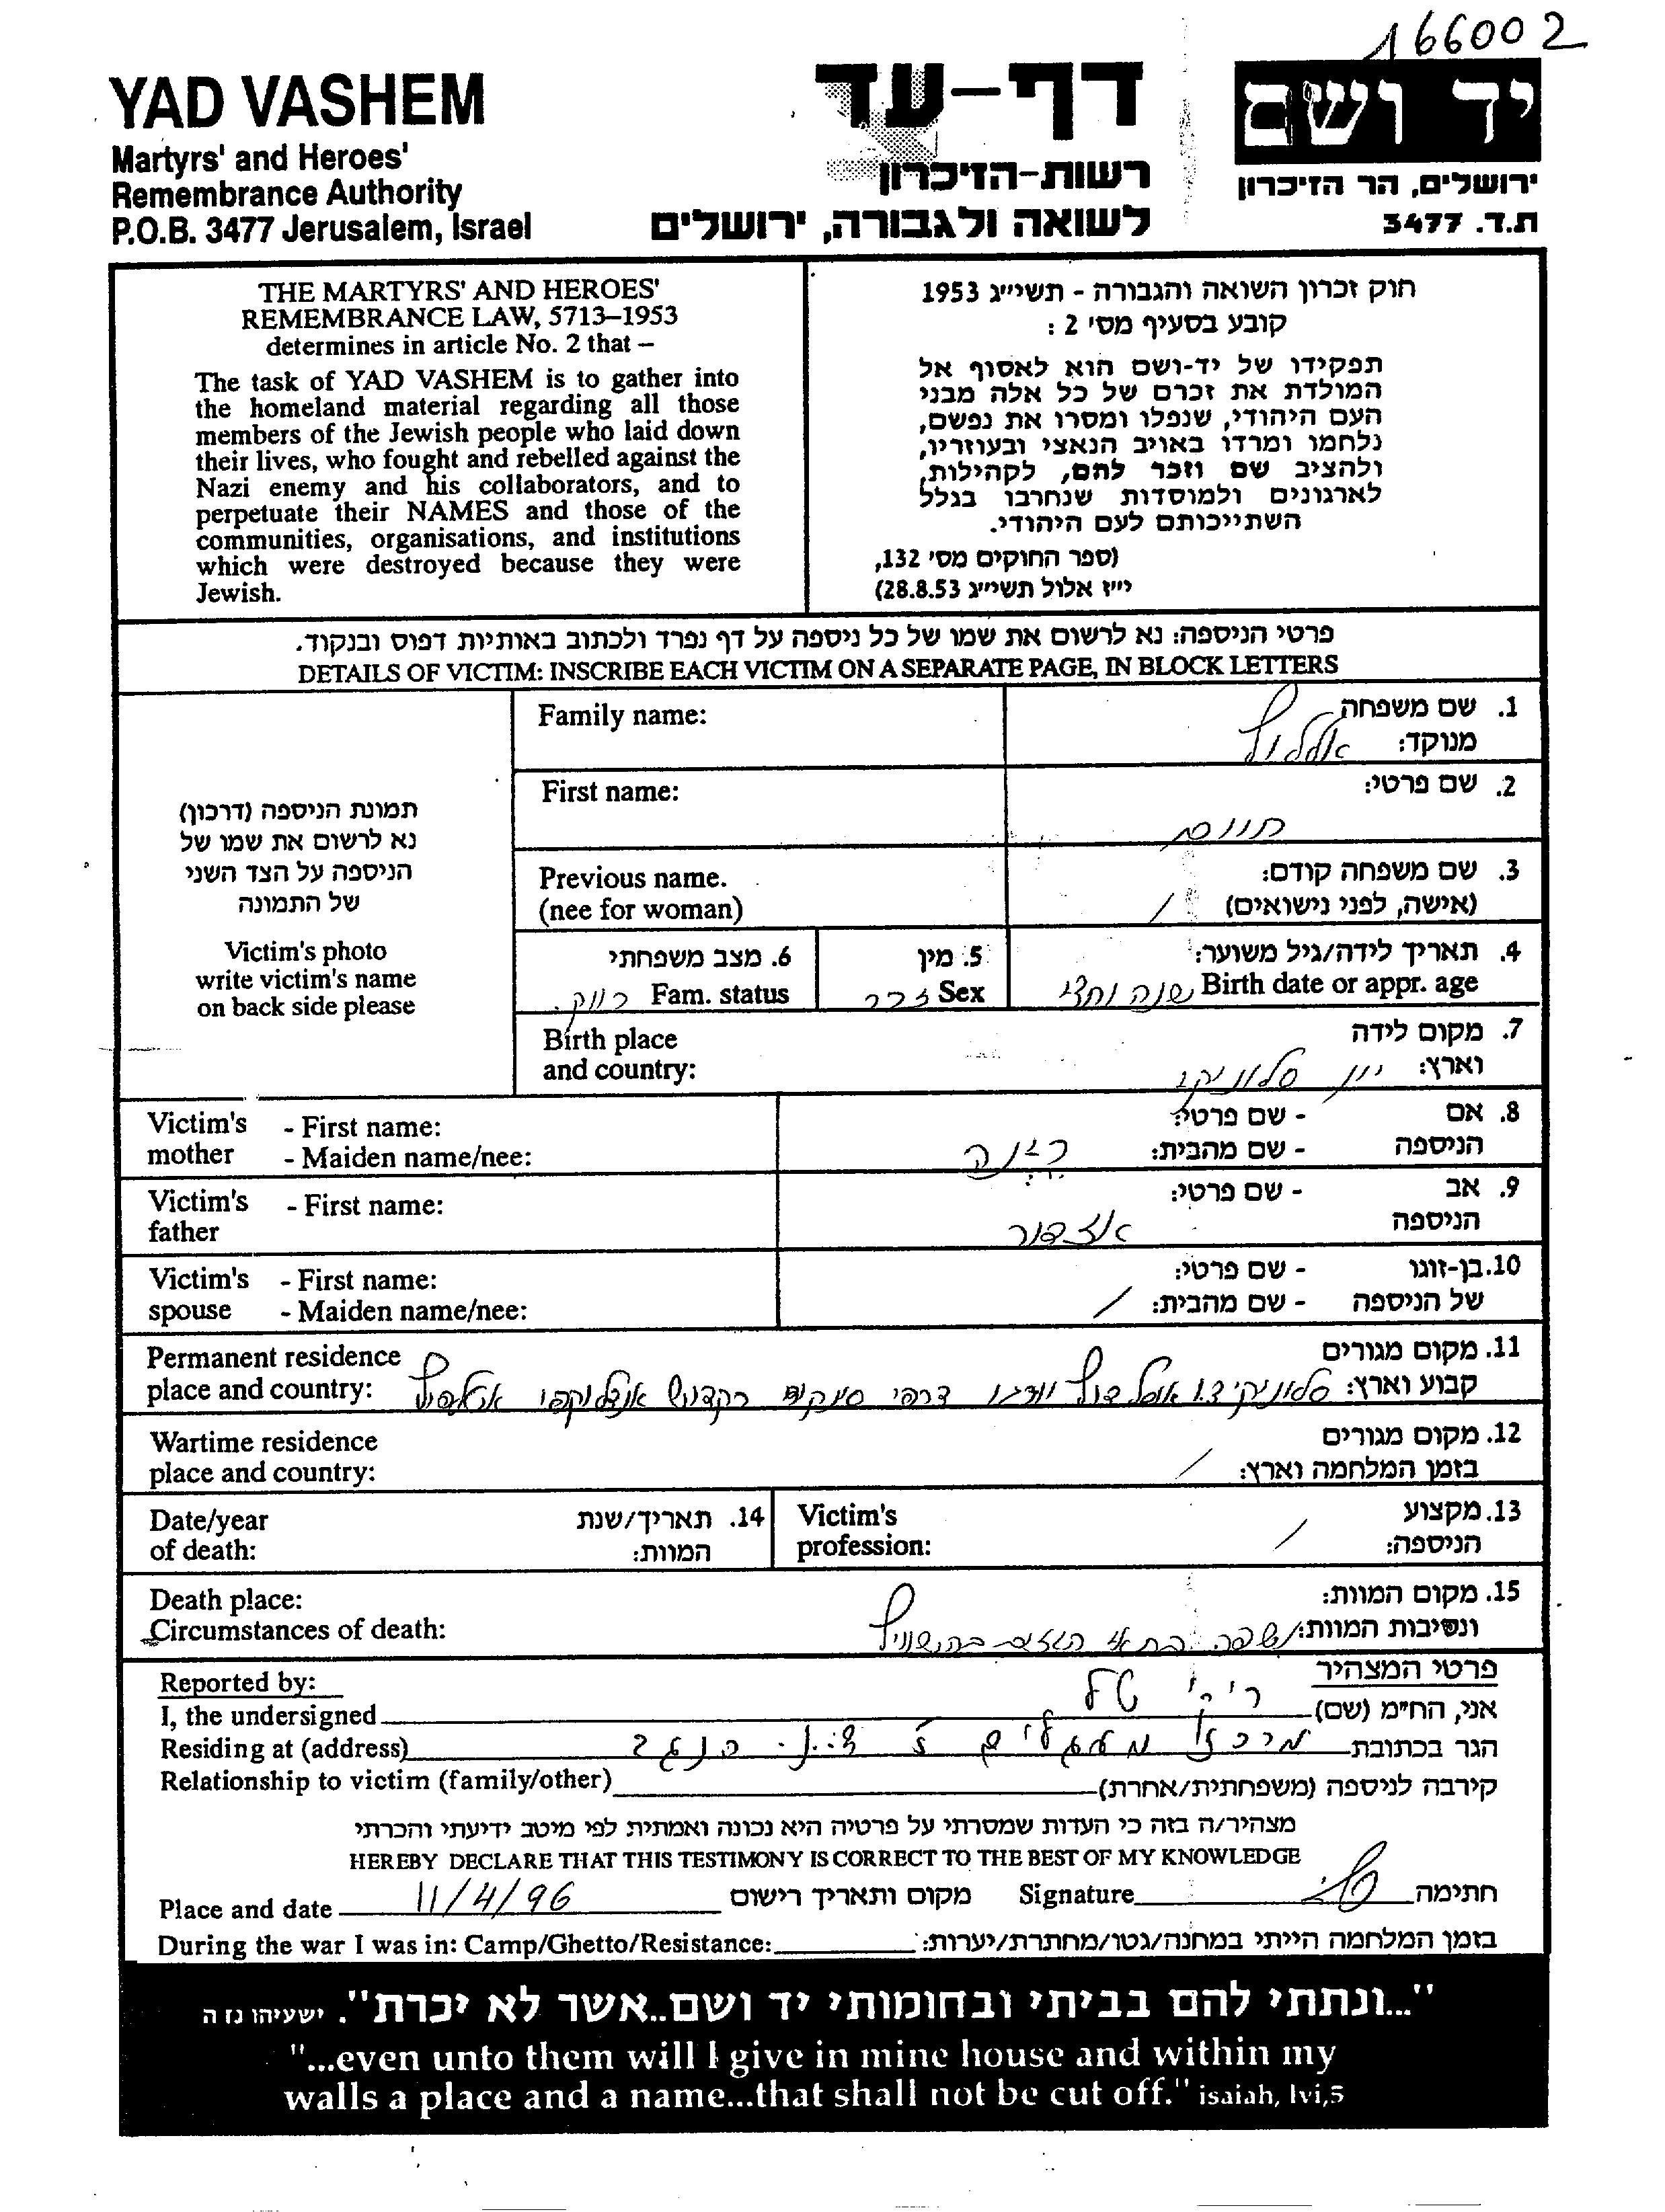 166002
YAD VASHEM
Martyrs' and Heroes'
Remembrance Authority
P.O.B. 3477 Jerusalem, Israel
דף-עד
רשות-הזיכרון
לשואה ולגבורה, ירושלים
יד ושם
ירושלים, הר הזיכרון
ת.ד. 3477
THE MARTYRS' AND HEROES'
REMEMBRANCE LAW, 5713–1953
determines in article No. 2 that –
The task of YAD VASHEM is to gather into
the homeland material regarding all those
members of the Jewish people who laid down
their lives, who fought and rebelled against the
Nazi enemy and his collaborators, and to
perpetuate their NAMES and those of the
communities, organisations, and institutions
which were destroyed because they were
Jewish.
חוק זכרון השואה והגבורה - תשי״ג 1953
קובע בסעיף מס׳ 2 :
תפקידו של יד-ושם הוא לאסוף אל
המולדת את זכרם של כל אלה מבני
העם היהודי, שנפלו ומסרו את נפשם,
נלחמו ומרדו באויב הנאצי ובעוזריו,
ולהציב שם וזכר להם, לקהילות,
לארגונים ולמוסדות שנחרבו בגלל
השתייכותם לעם היהודי.
(ספר החוקים מס׳ 132,
י״ז אלול תשי״ג 28.8.53)
פרטי הניספה: נא לרשום את שמו של כל ניספה על דף נפרד ולכתוב באותיות דפוס ובנקוד.
DETAILS OF VICTIM: INSCRIBE EACH VICTIM ON A SEPARATE PAGE, IN BLOCK LETTERS
תמונת הניספה (דרכון)
נא לרשום את שמו של
הניספה על הצד השני
של התמונה
Victim's photo
write victim's name
on back side please
Family name:
1. שם משפחה
מנוקד:
First name:
2. שם פרטי:
חיים
Previous name.
(nee for woman)
3. שם משפחה קודם:
(אישה, לפני נישואים) /
4. תאריך לידה/גיל משוער:
Birth date or appr. age שנה וחצי
5. מין
Sex זכר
6. מצב משפחתי
Fam. status רווק.
Birth place
and country:
7. מקום לידה
וארץ: יוון סלוניקי
Victim's mother - First name:
- Maiden name/nee:
8. אם הניספה - שם פרטי:
- שם מהבית:
Victim's father - First name:
9. אב הניספה - שם פרטי:
Victim's spouse - First name:
- Maiden name/nee:
10. בן-זוגו של הניספה - שם פרטי:
- שם מהבית: /
Permanent residence
place and country:
11. מקום מגורים
קבוע וארץ: סלוניקי
Wartime residence
place and country:
12. מקום מגורים
בזמן המלחמה וארץ: /
Date/year
of death:
14. תאריך/שנת
המוות:
Victim's
profession:
13. מקצוע
הניספה: /
Death place:
Circumstances of death:
15. מקום המוות:
ונסיבות המוות:
Reported by:
פרטי המצהיר
I, the undersigned
אני, הח״מ (שם) ריקי טל
Residing at (address)
הגר בכתובת
Relationship to victim (family/other)
קירבה לניספה (משפחתית/אחרת)
מצהיר/ה בזה כי העדות שמסרתי על פרטיה היא נכונה ואמתית לפי מיטב ידיעתי והכרתי
HEREBY DECLARE THAT THIS TESTIMONY IS CORRECT TO THE BEST OF MY KNOWLEDGE
Place and date 11/4/96 מקום ותאריך רישום Signature חתימה
During the war I was in: Camp/Ghetto/Resistance: בזמן המלחמה הייתי במחנה/גטו/מחתרת/יערות:
"...ונתתי להם בביתי ובחומותי יד ושם..אשר לא יכרת". ישעיהו נו ה
"...even unto them will I give in mine house and within my
walls a place and a name...that shall not be cut off." isaiah, lvi,5